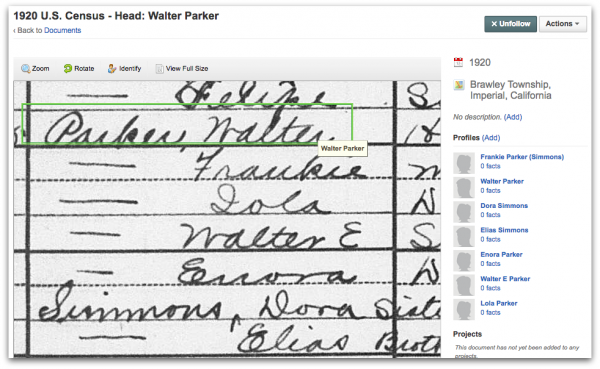 1920 U.S. Census - Head: Walter Parker
‹ Back to Documents
× Unfollow
Actions
Zoom
Rotate
Identify
View Full Size
— Felize S
Parker, Walter H
Walter Parker
— Frankie m
— Iola D
— Walter E S
— Enora D
Simmons, Dora Siste
— Elias Broth
1920
Brawley Township,
Imperial, California
No description. (Add)
Profiles (Add)
Frankie Parker (Simmons)
0 facts
Walter Parker
0 facts
Dora Simmons
0 facts
Elias Simmons
0 facts
Enora Parker
0 facts
Walter E Parker
0 facts
Lola Parker
0 facts
Projects
This document has not yet been added to any
projects.